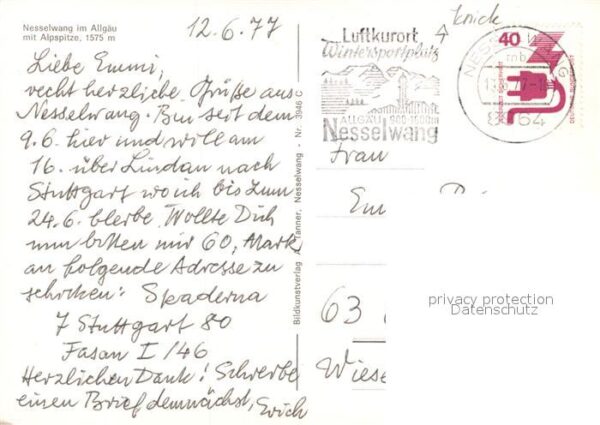 Nesselwang im Allgäu
mit Alpspitze, 1575 m
12.6.77
Liebe Emmi,
recht herzliche Grüße aus
Nesselwang. Bin seit dem
9.6. hier und will am
16. über Lindau nach
Stuttgart wo ich bis zum
24.6. bleibe. Wollte Dich
nun bitten mir 60,- Mark
an folgende Adresse zu
schicken: Spaderna
7 Stuttgart 80
Fasan I/46
Herzlichen Dank! Schreibe
einen Brief demnächst, Erich
Bildkunstverlag A. Tanner, Nesselwang - Nr. 3946 C
knick
Luftkurort
Wintersportplatz
ALLGÄU 900-1600m
Nesselwang
40
Frau
63
Wiese
privacy protection
Datenschutz